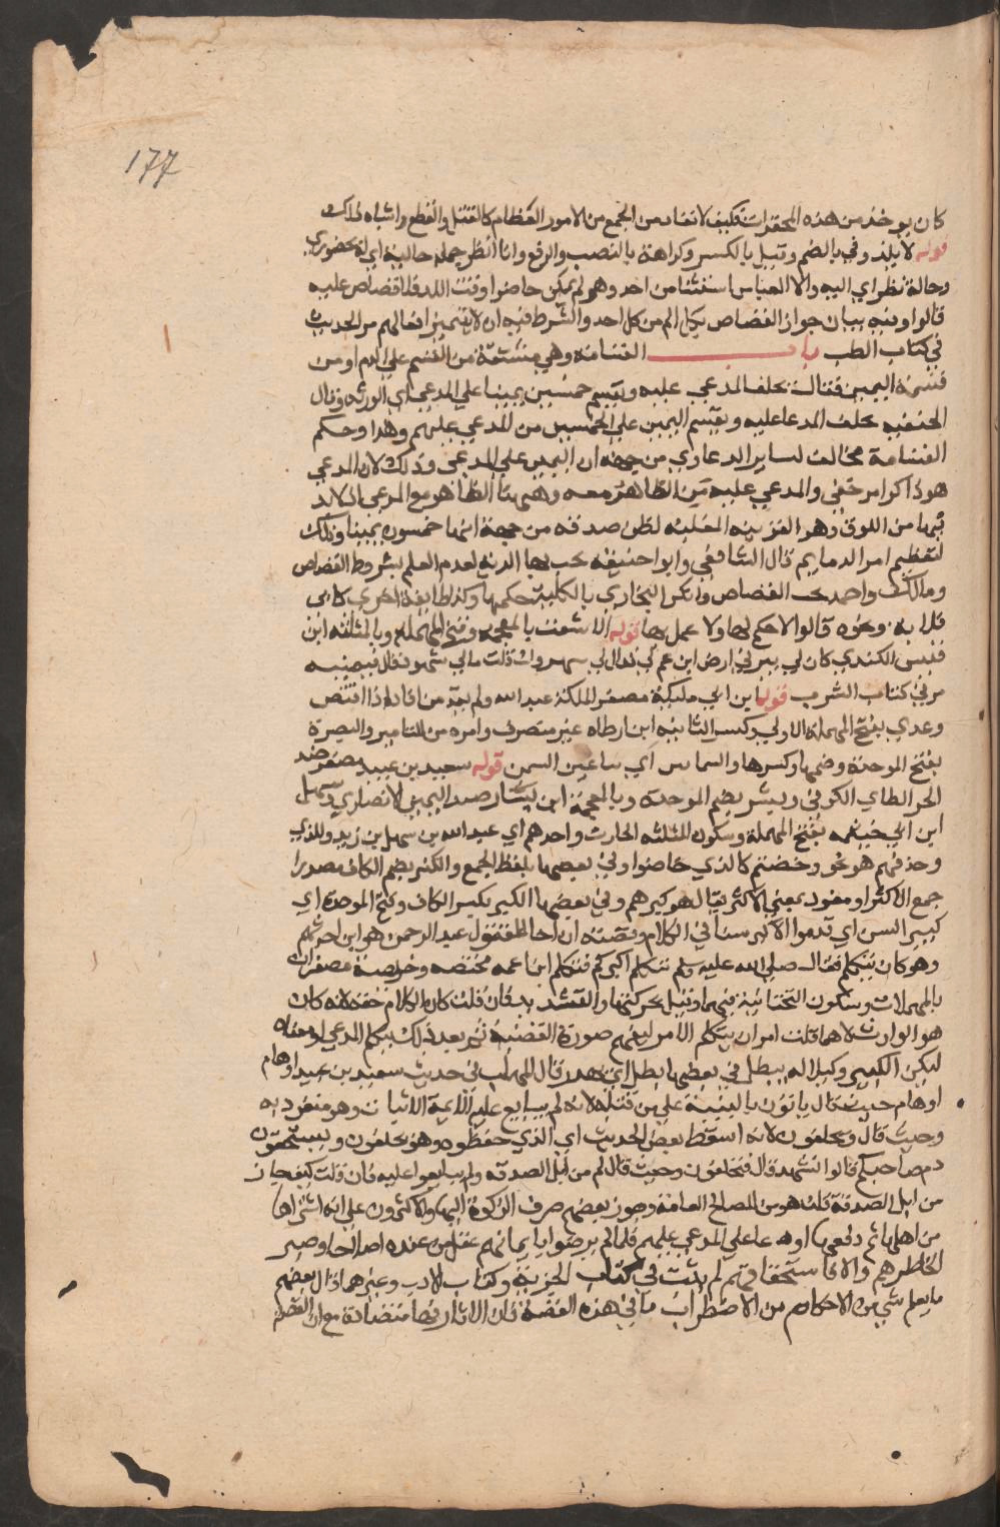 177
كان يوخذ من هذه المحقرات فكيف لا تقاد من الجمع من الامور العظام كالقتل والقطع واشباه ذلك
قوله لا يلد وفي بالضم وقيل بالكسر وكراهة بالنصب والرفع وانا انظر جملة حالية اي لا يحضوري
وحالة نظراي اليه والا العباس استثنا من احد وهو لم يكن حاضرا وقت اللد فلا قصاص عليه
قالوا وفيه بيان جواز القصاص بكل الم من كل احد والشرط فيه ان لا يتميز افعالهم مر الحديث
في كتاب الطب باب القسامة وهي مشتقة من القسم على الدم او من
قسمة اليمين فقال يحلف المدعي عليه ويقسم خمسين يمينا على المدعي اي الورثه وقال
الحنفيه يحلف المدعا عليه ويقسم اليمين على الخمسين من المدعي عليهم وهذا وحكم
القسامة مخالف لساير الدعاوي من جهة ان اليمين على المدعي وذلك لان المدعي
هو ذاكر امر خفي والمدعي عليه من الظاهر معه وههنا الظاهر مع المدعي اذ لا بد
فيها من اللوث وهو القرينه المغلبه لظن صدقه من جهة انها خمسون يمينا وذلك
لتعظيم امر الدما ثم قال الشافعي وابو احنيفه تجب بها الدية لعدم العلم بشروط القصاص
ومالك واحمد القصاص وانكر البخاري بالكلية حكمها وكذا طايفة اخري كابي
قلابه ونحوه قالوا لا حكم لها ولا عمل بها قوله الاشعث بالمعجمة وفتح المهملة وبالمثلثه ابن
قيس الكندي كان لي بير في ارض ابن عم لي فقال لي شهودك قلت مالي شهود فقال فيمينه
مر في كتاب الشرب قوله ابن ابي مليكة مصغر الملكة عبد الله ولم يقد من اقاد اذا اقتص
وعدي بفتح المهملة الاولى وكسر الثانيه ابن ارطاه غير منصرف وامره من التامير والبصرة
بفتح الموحدة وضمها وكسرها والسمان اي بياعين السمن قوله سعيد بن عبيد مصغر ضد
الحر الطاي الكوفي وبشير بضم الموحدة وبالمعجمة ابن يسار ضد اليمين الانصاري وسهل
ابن ابي حثمه بفتح المهملة وسكون المثلثه الحارث واحدهم اي عبد الله بن سهل بن زيد وللذي
وحد فيهم هو نحو وخضتم كالذي خاضوا وفي بعضها بلفظ الجمع والكبر بضم الكاف مصدرا
جمع الاكبر او مفرد بمعني الاكبر يقال هو كبرهم وفي بعضها الكبر بكسر الكاف وفتح الموحدة اي
كبير السن اي قدموا الاكبر سنا في الكلام وقصته ان اخا المقتول عبد الرحمن هو ابن احرثهم
وهو كان يتكلم فقال صلى الله عليه وسلم يتكلم اكبركم فتكلم ابنا عمه محيصه وحويصة مصغران
بالمهملات وسكون التحتانية فيهما وقيل بحركتها والقشد يد فان قلت كان الكلام حقه لانه كان
هو الوارث لا هما قلت امر ان يتكلم الاكبر ليفهم صورة القضية ثم بعد ذلك يتكلم المدعي او معناه
ليكن الكبير وكيلا له يبطل في بعضها يطل اي يهدر قال المهلب في حديث سعيد بن عبيد اوهام
اوهام حيث قال ياتون بالبينة على من قتله لانه لم يتابع عليه الائمة الاثبات وهو منفرد به
وحيث قال ويحلفون لانه اسقط بعض الحديث اي الذي حفظوه وهو يحلفون ويستحقون
دم صاحبكم قالوا لم نشهد قال فتحلفون وحيث قال لم من ابل الصدقه ولم يتابعوا عليه فان قلت كيف جاز
من ابل الصدقة قلت هو من المصالح العامة وجوز بعضهم صرف الزكوة اليها والاكثرون على انه اشتراها
من اهلها ثم دفعها او هـ عا على المدعي عليهم فلما لم يرضوا بايمانهم عقل من عنده اصلاحا وجبر
الخاطرهم والا فاستحقاقهم لم يثبت في كتاب الجزية وكتاب الادب وغيرهما قال بعضهم
ما يعلم شي من الاحكام من الاضطراب ما في هذه القصة فان الاثار فيها متضادة مع ان القصة